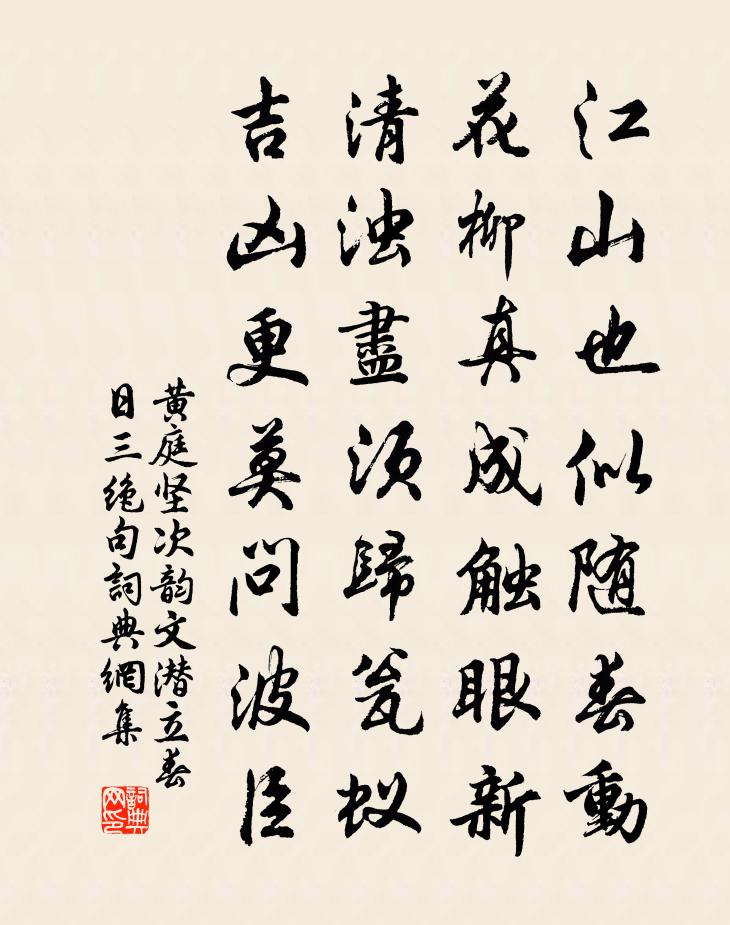 江山也似随春動
花柳真成触眼新
清浊盡须歸瓮蚁
吉凶更莫問波臣
黄庭坚次韵文潜立春
日三绝句詞典網集
詞典
网印